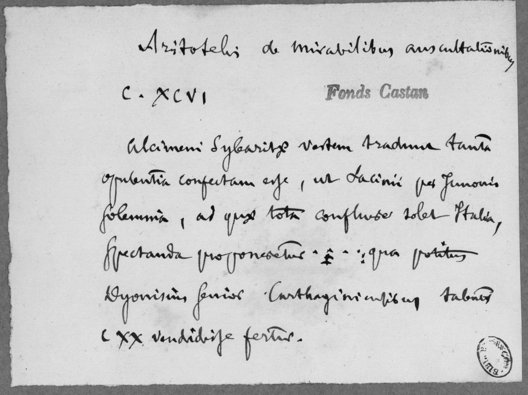 Aristotelis de mirabilibus auscultationibus
C. XCVI
Fonds Castan
Alcimeni Sybaritæ vestem tradunt tantâ
opulentiâ confectam esse, ut Lacinii per Junonis
solemnia, ad quæ tota confluere solet Italia,
spectanda proponeretur ... qua potitus
Dyonisius senior Carthaginiensibus talentis
CXX vendidisse fertur.